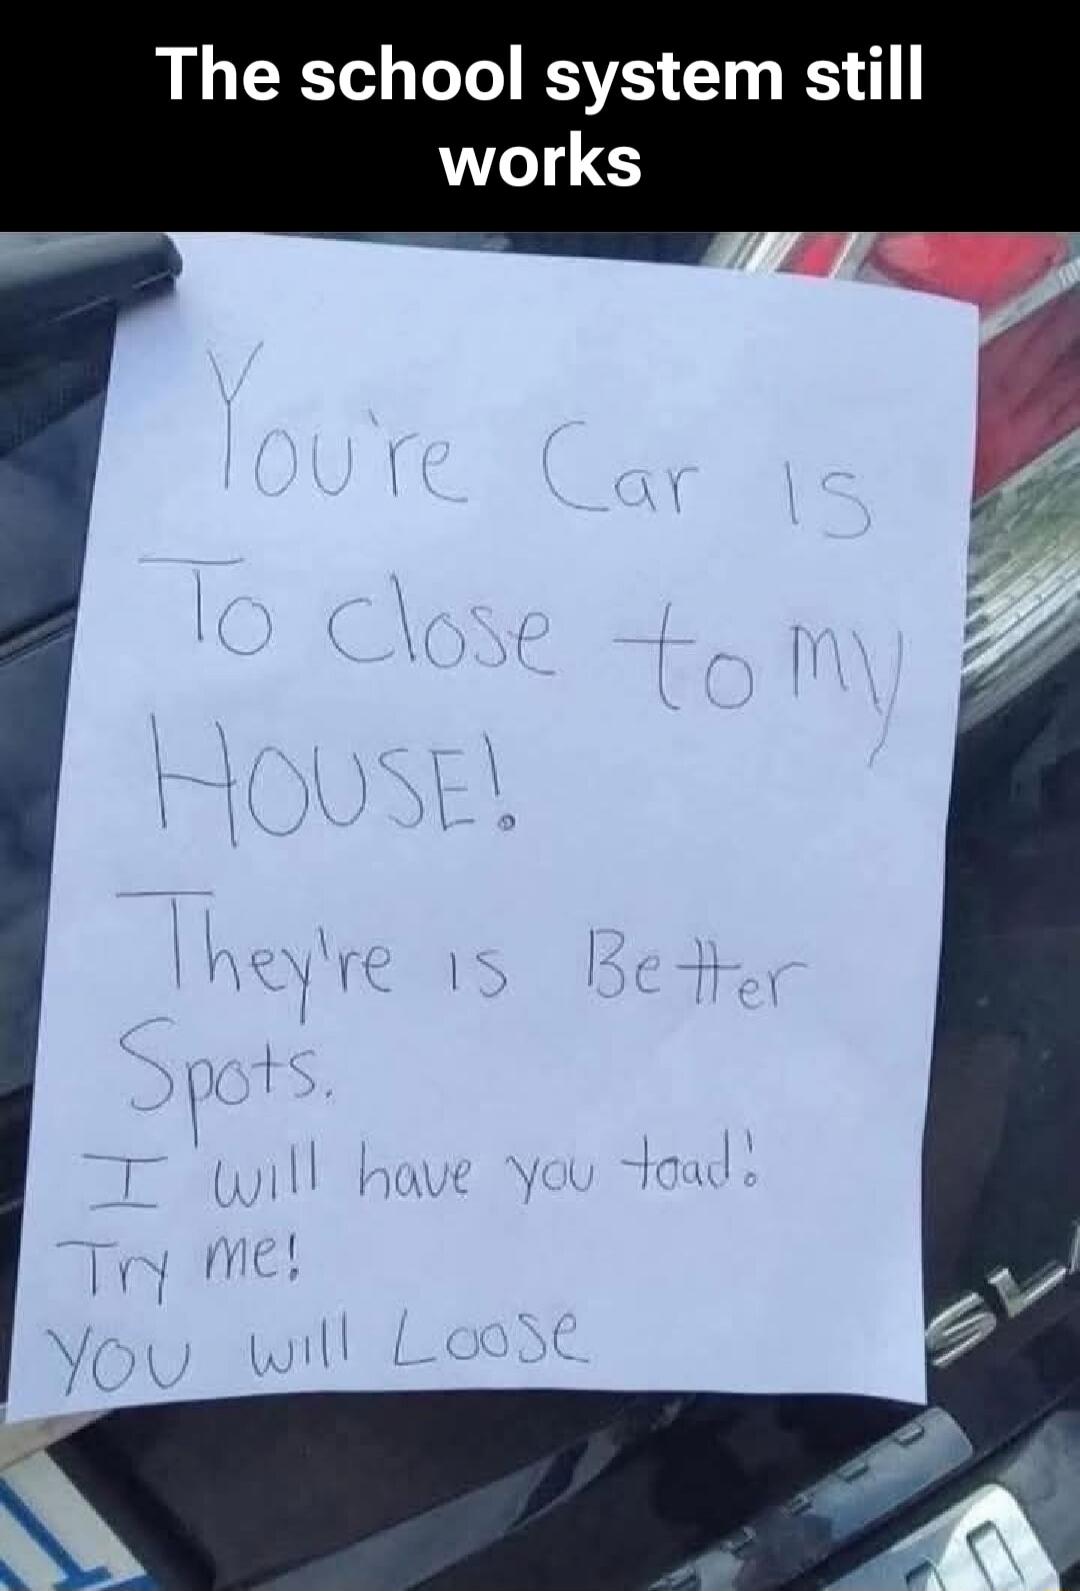 The school system still
works
You're Car is
To close to my
HOUSE!
They're is Better
Spots.
I will have you toad!
Try me!
YOU will Loose
SL